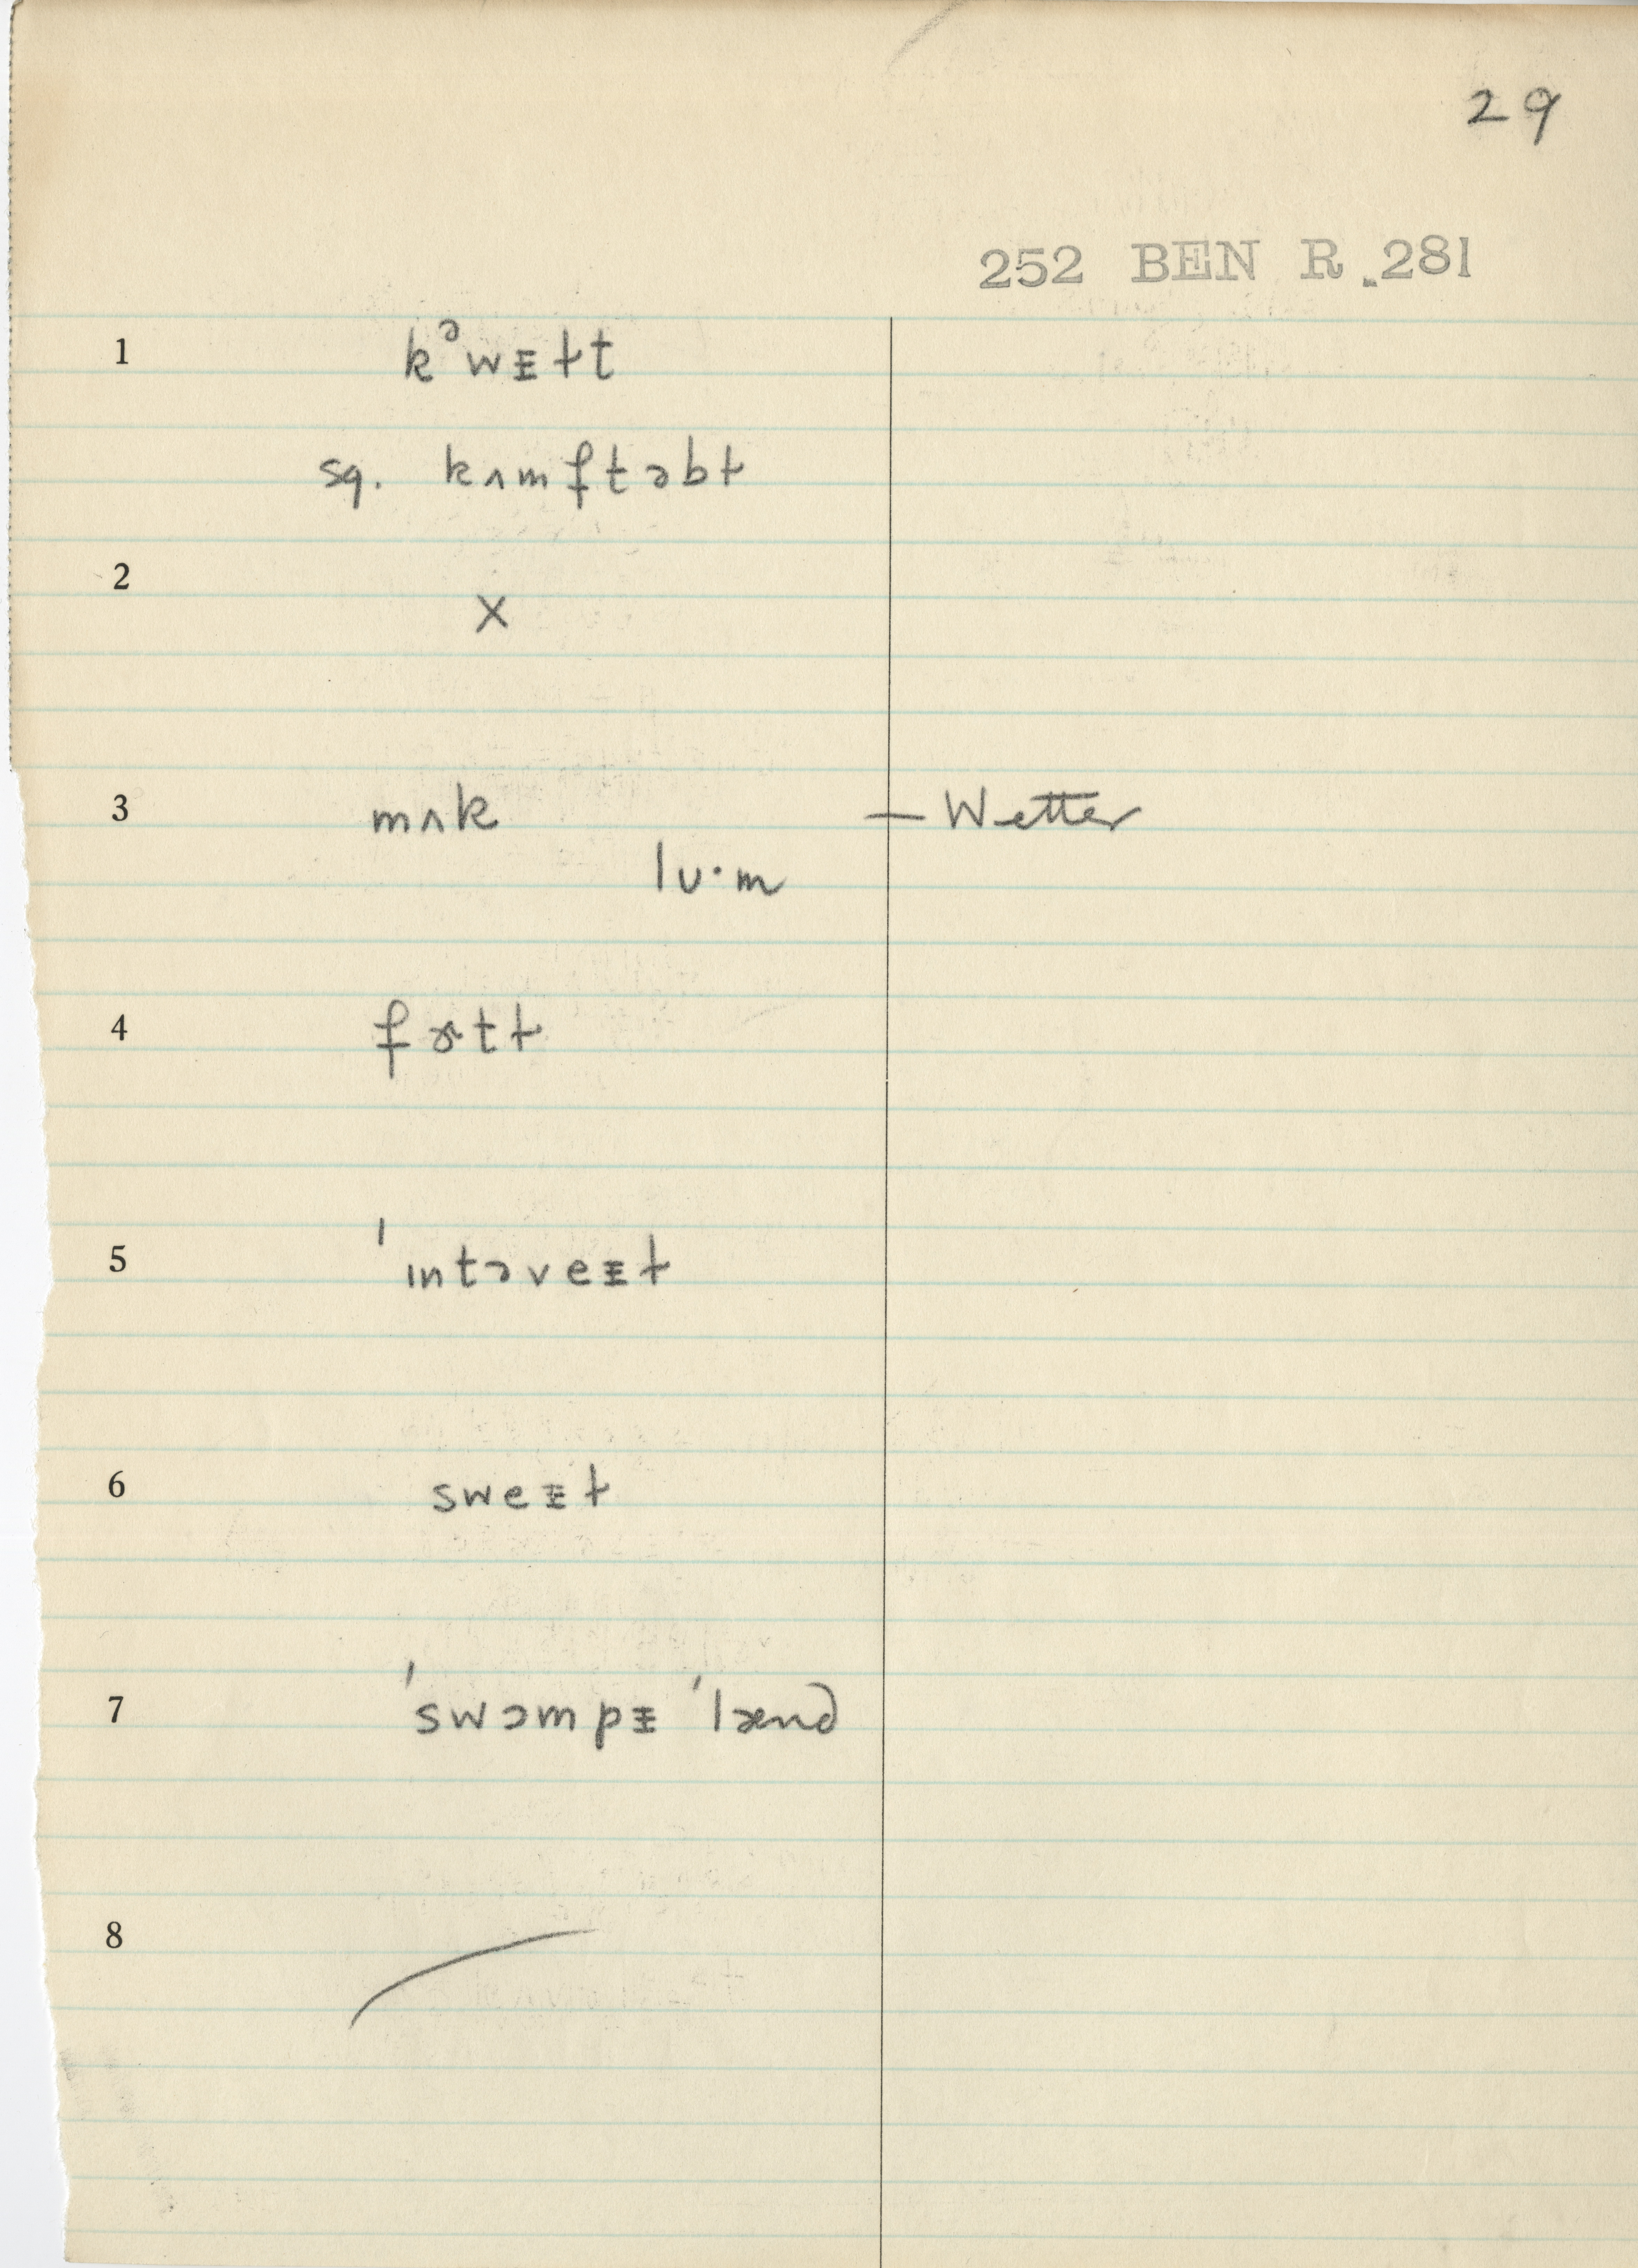 29
252 BEN R .281
1 kᵊwᵻɫt
sq. kʌmftəbɫ
2 X
3 mʌk — Wetter
lʊ·m
4 fɚtɫ
5 ˈɪntəveᵻɫ
6 sweᵻɫ
7 ˈswɔmpᵻ ˈlænd
8